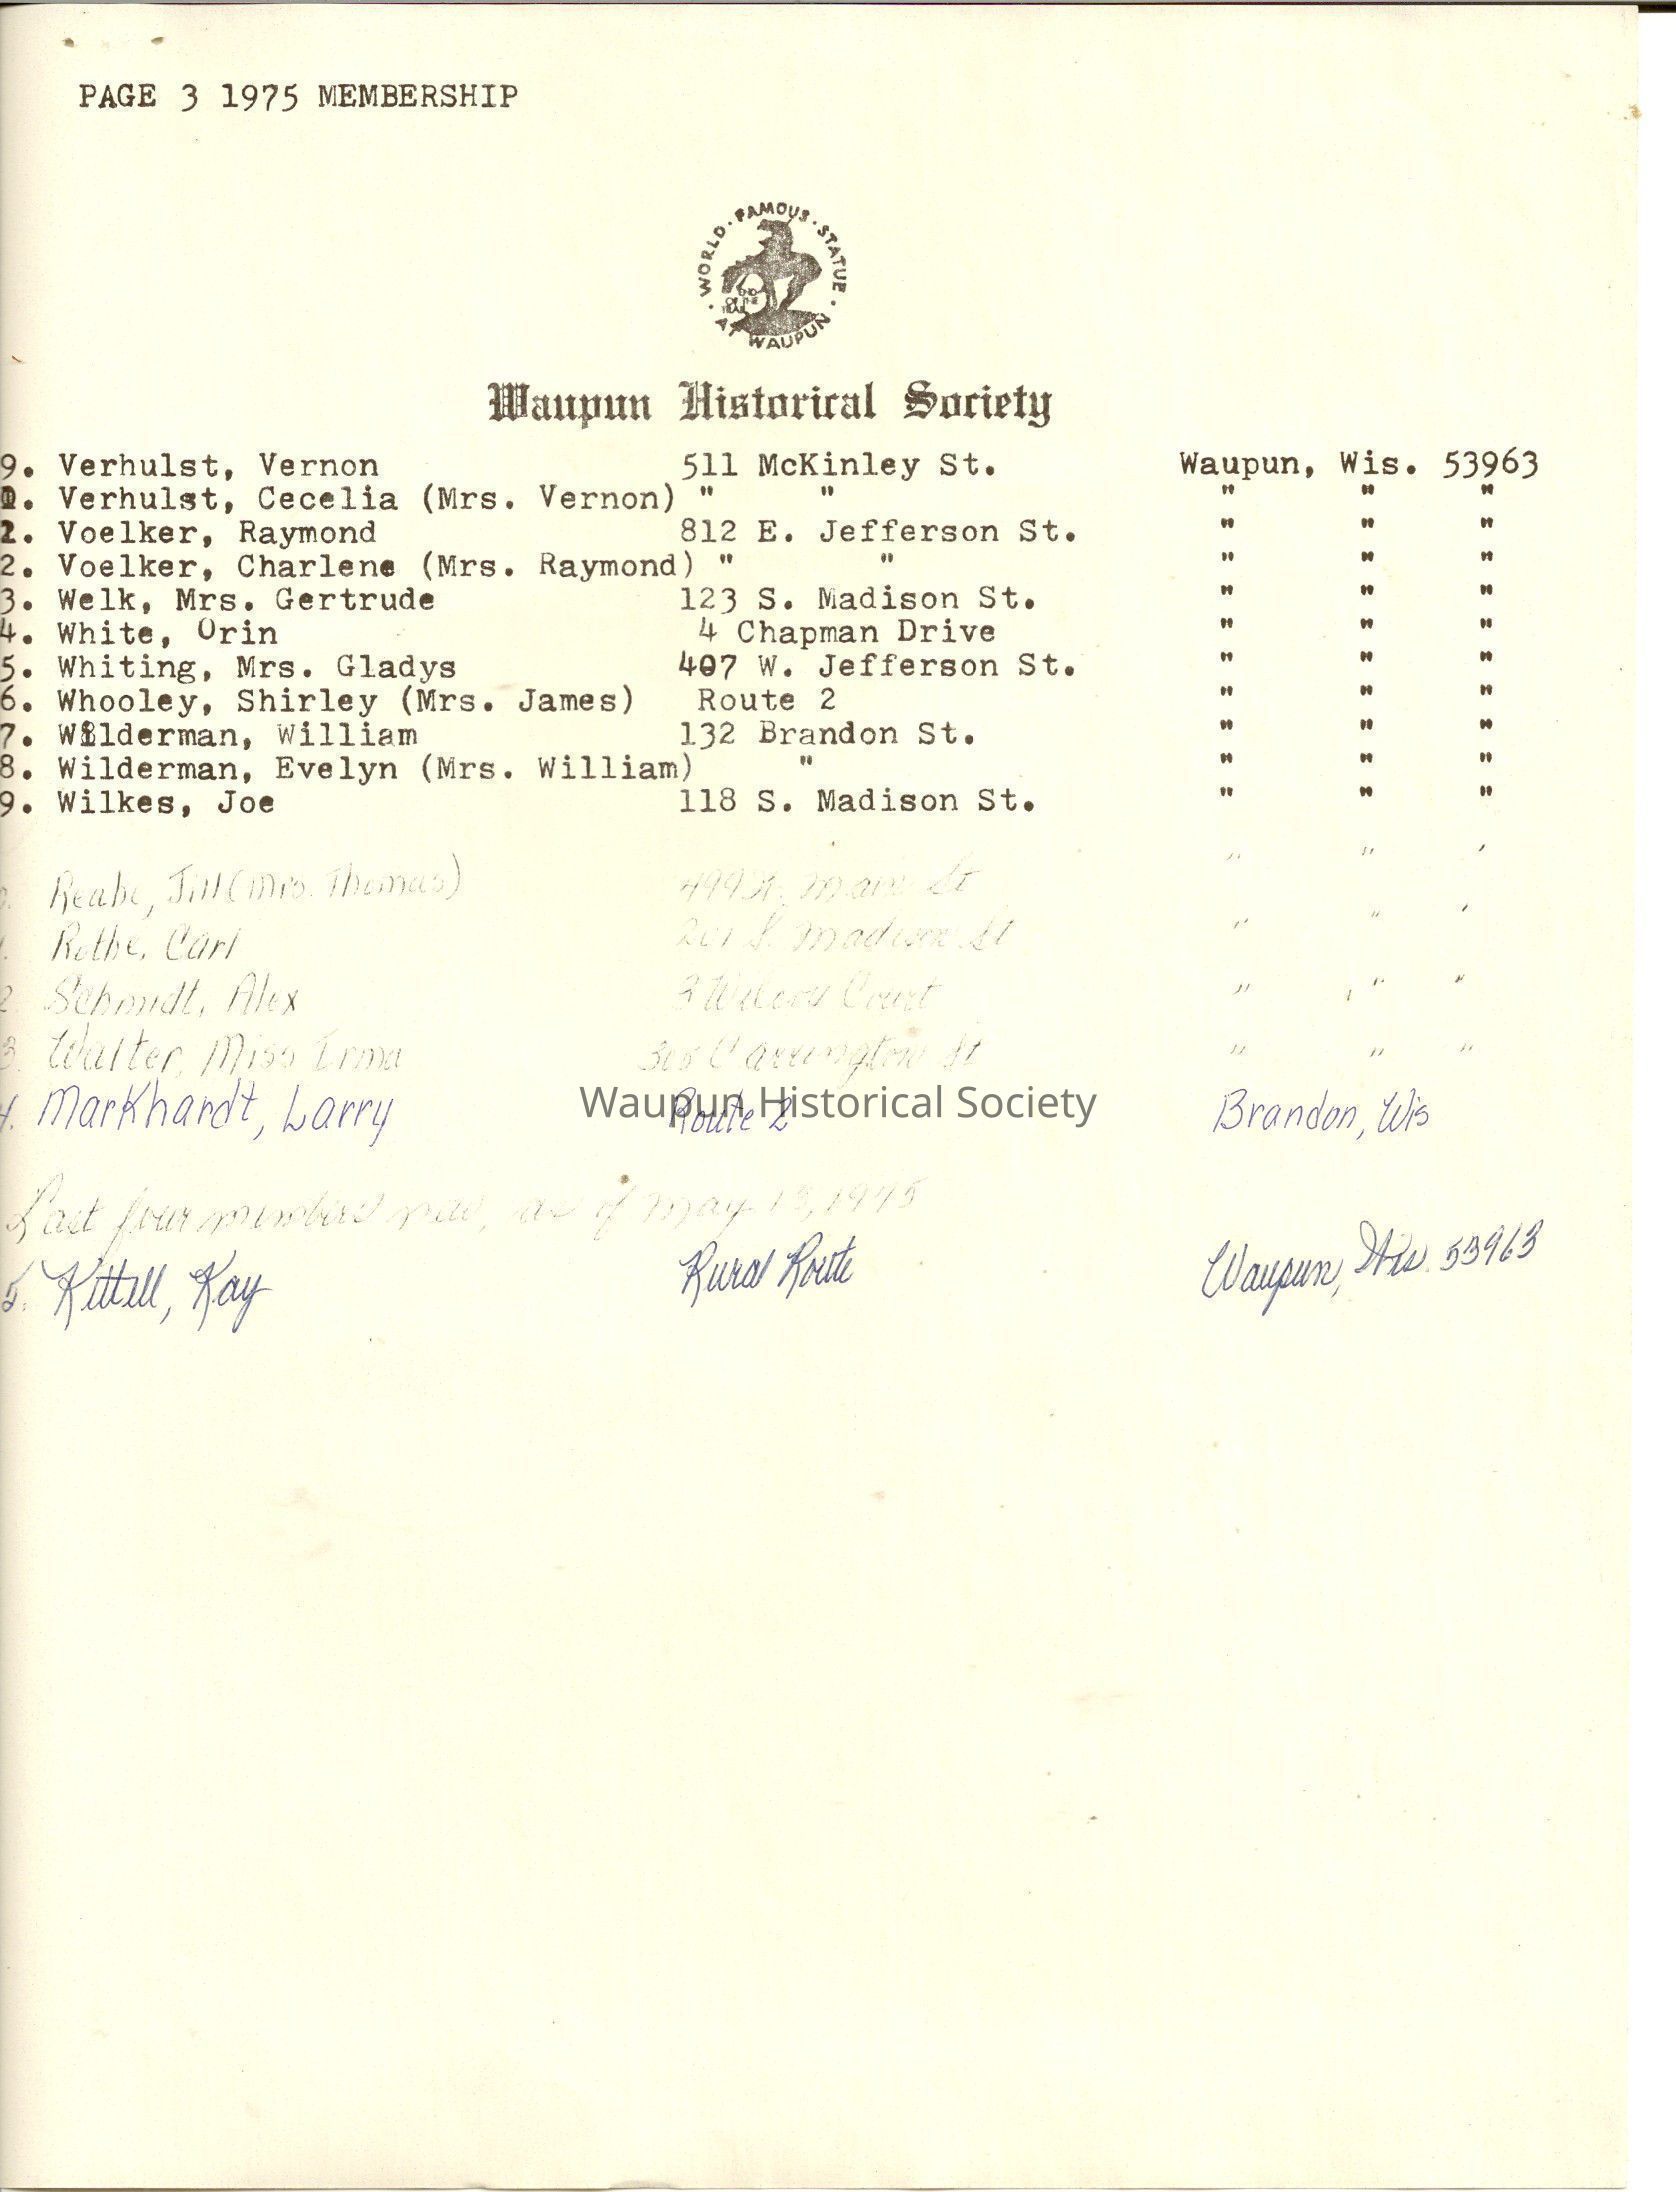 PAGE 3 1975 MEMBERSHIP
WORLD · FAMOUS · STATUE · AT WAUPUN ·
END OF THE TRAIL
Waupun Historical Society
9. Verhulst, Vernon 511 McKinley St. Waupun, Wis. 53963
0. Verhulst, Cecelia (Mrs. Vernon) " " " " "
1. Voelker, Raymond 812 E. Jefferson St. " " "
2. Voelker, Charlene (Mrs. Raymond) " " " " "
3. Welk, Mrs. Gertrude 123 S. Madison St. " " "
4. White, Orin 4 Chapman Drive " " "
5. Whiting, Mrs. Gladys 407 W. Jefferson St. " " "
6. Whooley, Shirley (Mrs. James) Route 2 " " "
7. Wilderman, William 132 Brandon St. " " "
8. Wilderman, Evelyn (Mrs. William) " " " "
9. Wilkes, Joe 118 S. Madison St. " " "
Reabe, Jill (Mrs. Thomas) Main St " " "
Rothe, Carl 201 S. Madison St " " "
2. Schmidt, Alex 3 Wilcox Court " " "
3. Walter, Miss Irma Carrington St " " "
4. Markhardt, Larry Route 2 Brandon, Wis
Waupun Historical Society
Last four members new, as of May 13, 1975
5. Kittell, Kay Rural Route Waupun, Wis. 53963